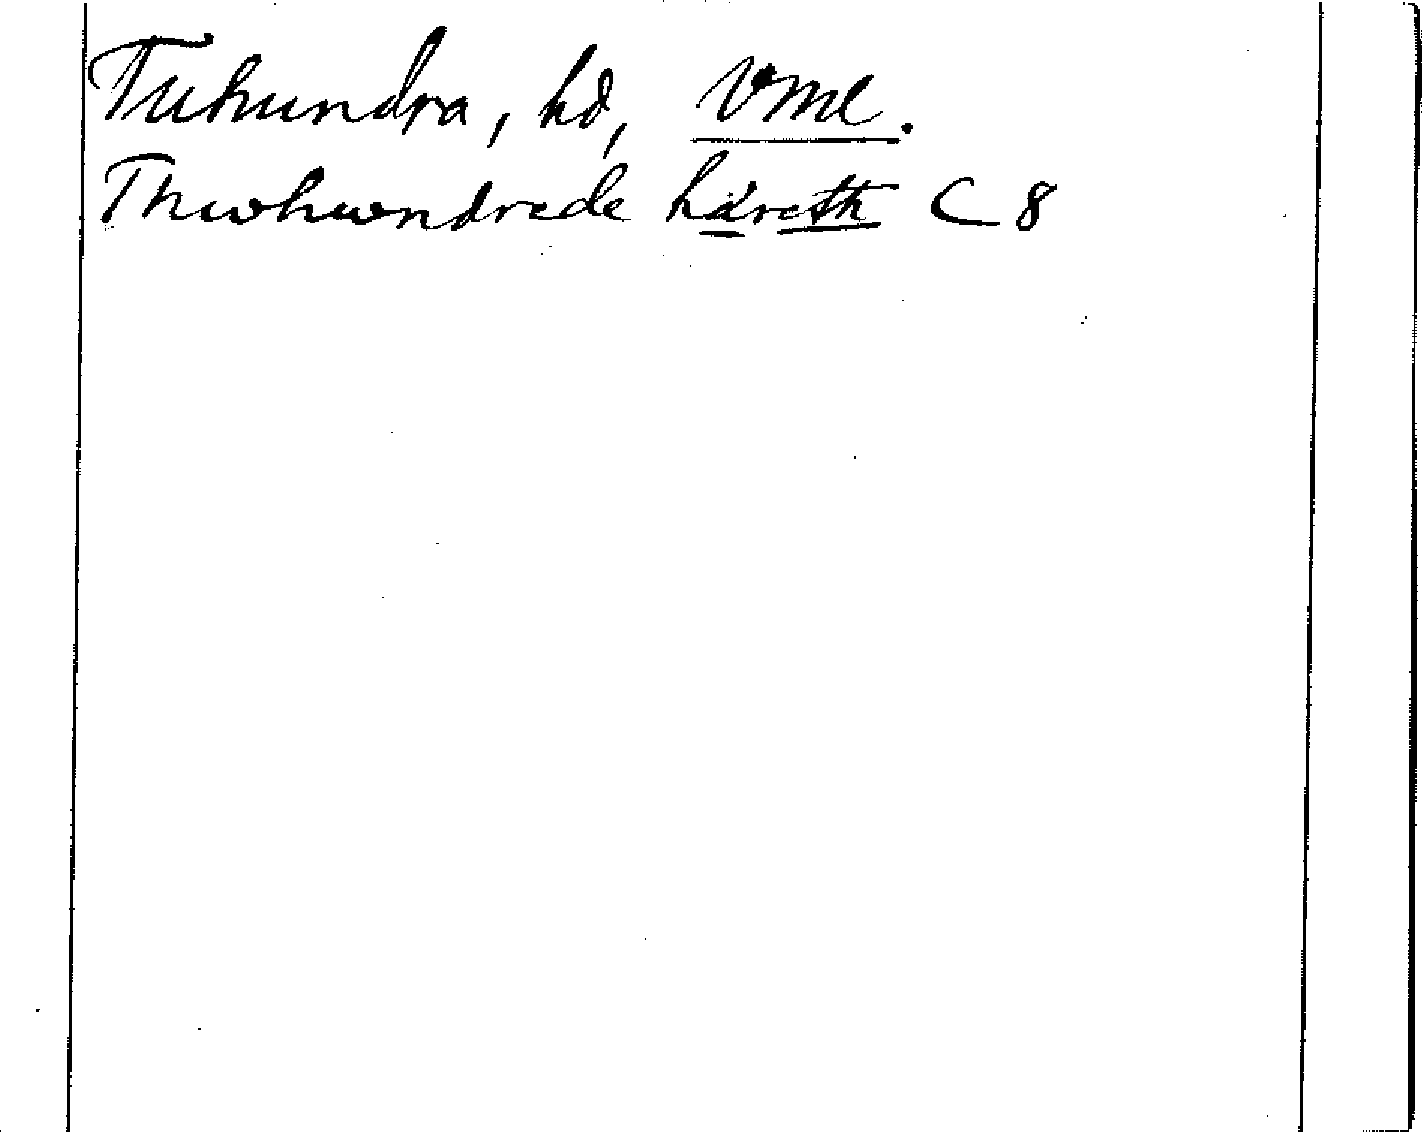 Tuhundra, hd, Vml.
Thwhwndrede häreth C 8